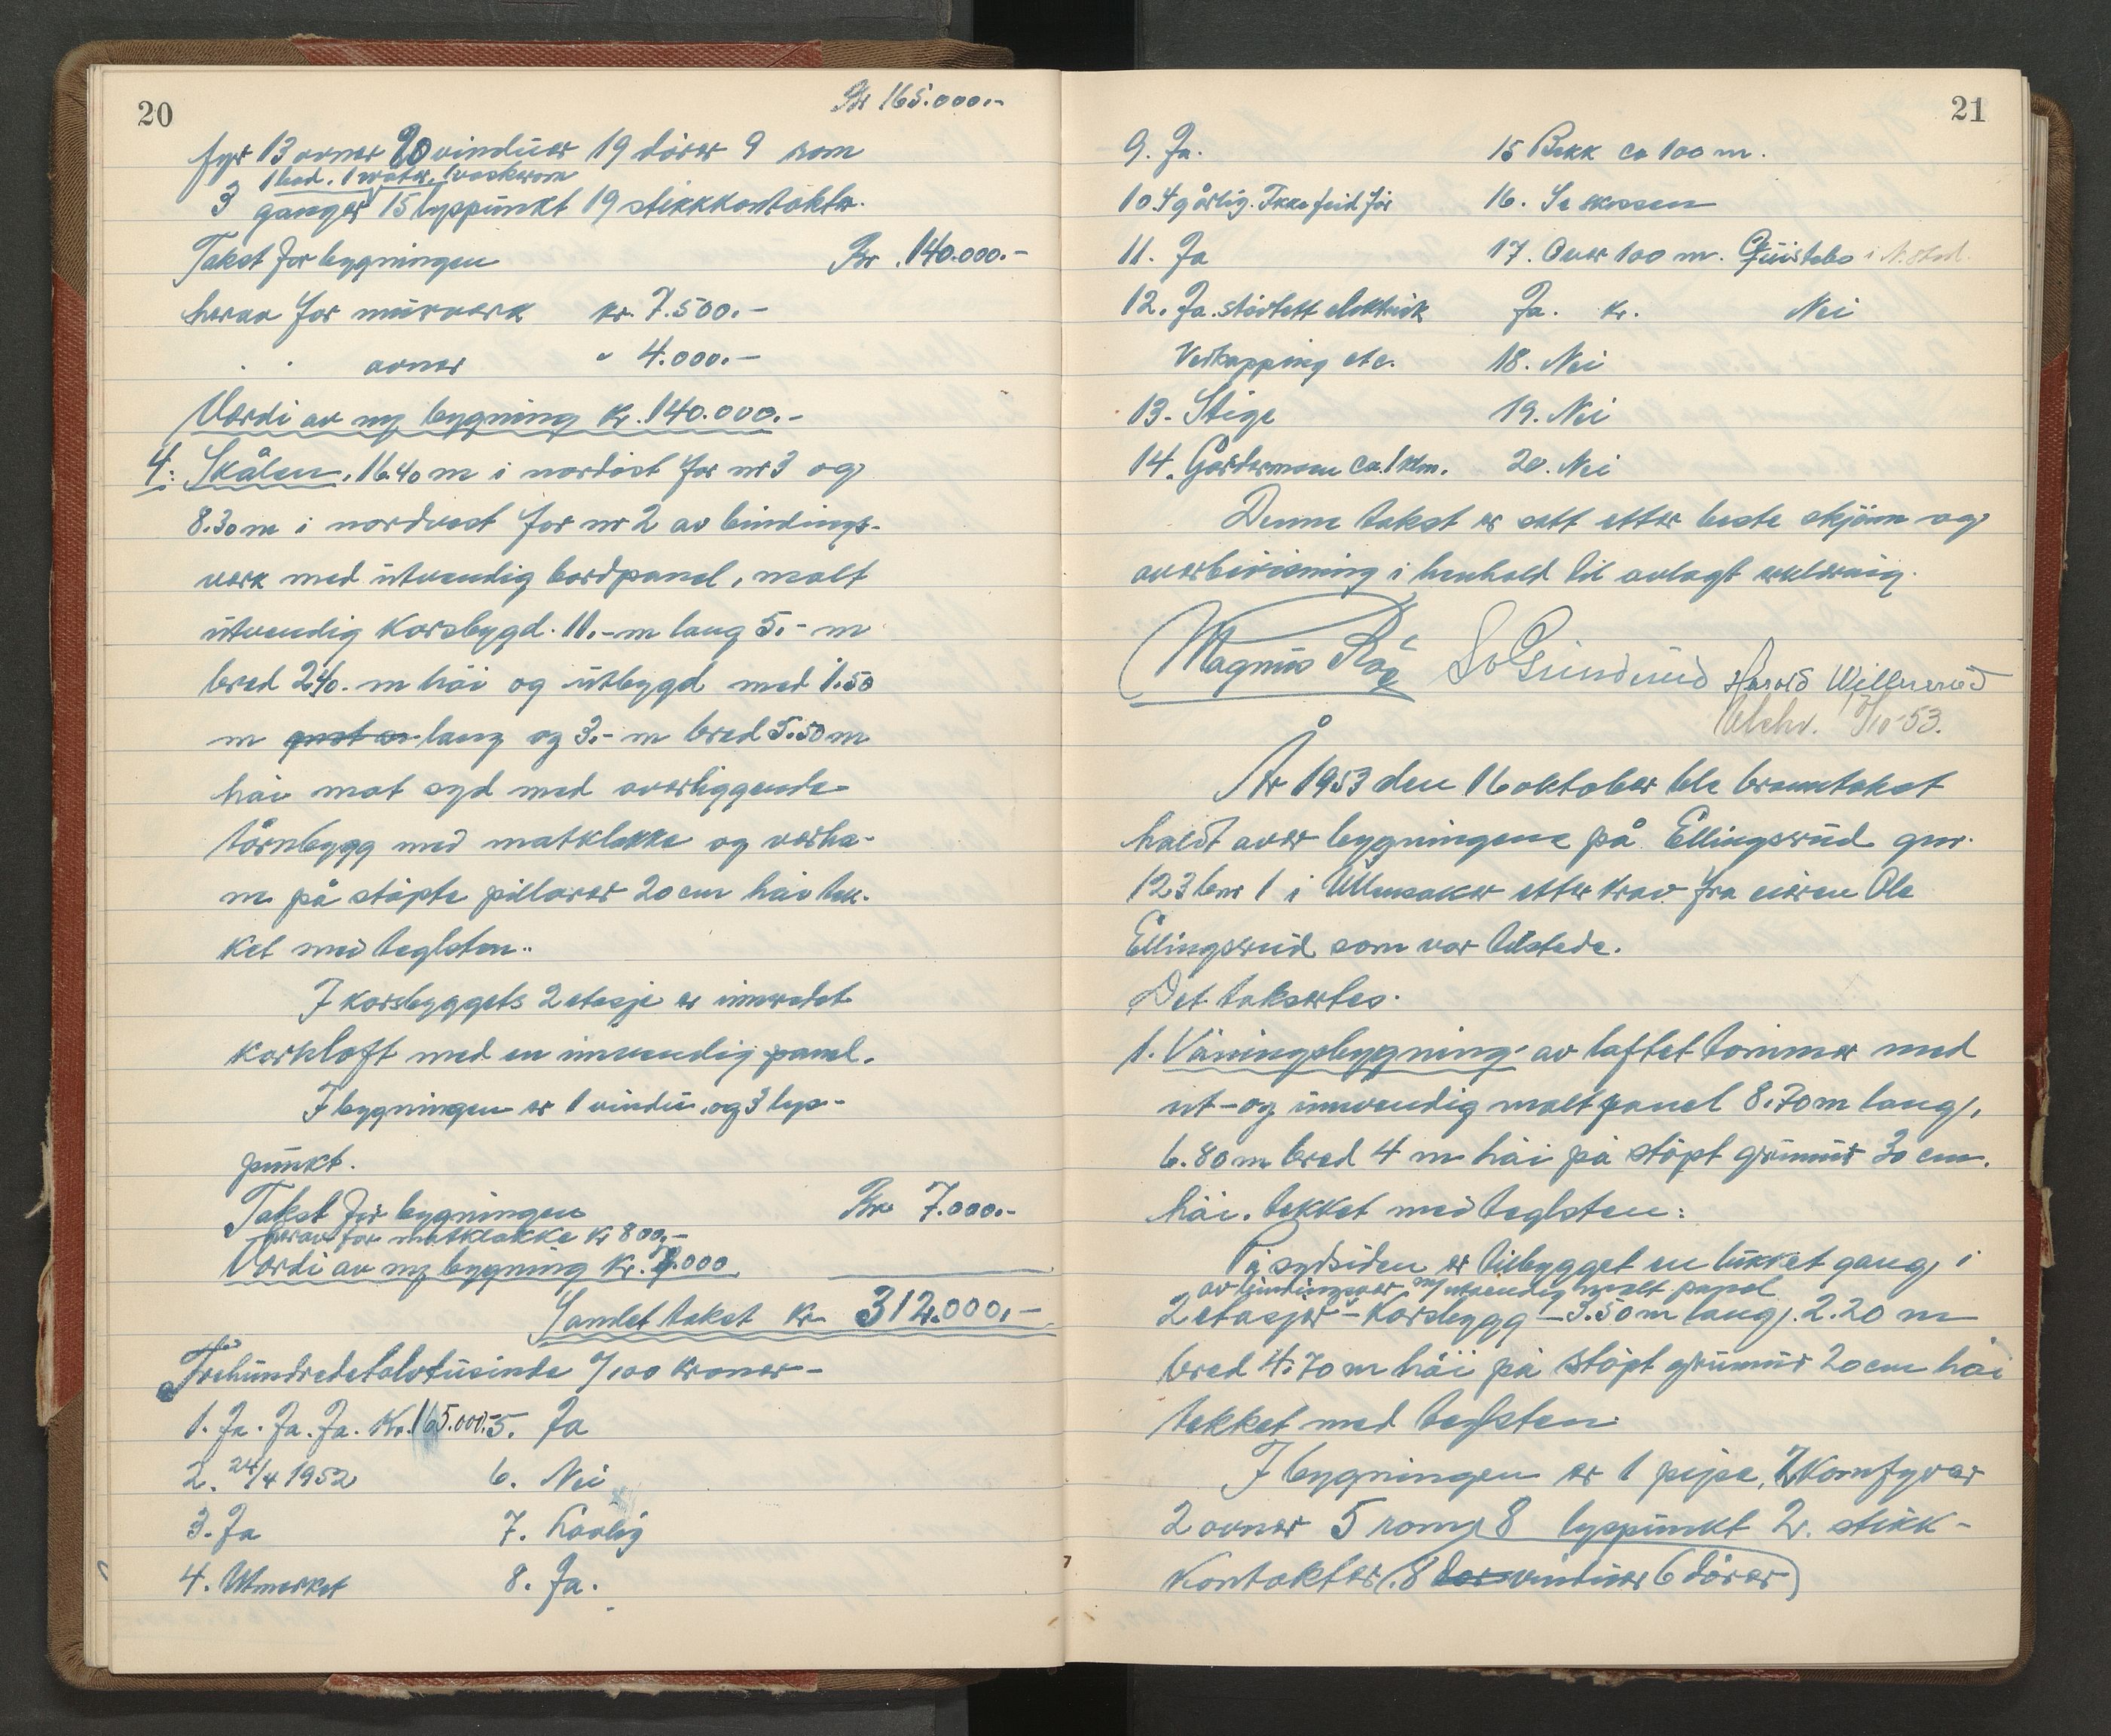 20
Kr 165.000.-
fyr 13 ovner 20 vinduer 19 dörer 9 rom
1 bad. 1 water, 1 vaskerom
3 ganger 15 lyspunkt 19 stikkkontakter.
Takst for bygningen Kr. 140.000.-
herav for murverk kr. 7.500.-
" " ovner " 4.000.-
Verdi av ny bygning kr. 140.000.-
4. Skålen, 16.40 m i nordöst for nr 3 og
8.30 m i nordvest for nr 2 av bindings-
verk med utvendig bordpanel, malt
utvendig korsbygd. 11.- m lang 5.- m
bred 2.40. m höi og utbygd med 1.50
m lang og 3.- m bred 5.50 m
höi mot syd med overliggende
tårnbygg med matklokke og verha-
ne på stöpte pillarer 20 cm höi tek-
ket med teglsten..
I korsbyggets 2 etasje er innredet
kornloft med en innvendig panel.
I bygningen er 1 vindu og 3 lys-
punkt.
Takst for bygningen Kr 7.000.-
herav for matklokke kr 800,-
Verdi av ny bygning kr. 7.000
Samlet takst kr 312.000.-
Trehundredetolvtusinde 0/100 kroner-
1. Ja. Ja. Ja. Kr. 165.000.- 5. Ja
2. 24/4 1952 6. Nei
3. Ja 7. Lovlig
4. Utmerket 8. Ja.
21
9. Ja. 15 Bekk ca 100 m.
10. 4 g årlig. Ikke feid för 16. Se skissen
11. Ja 17. Over 100 m. Quistebo i N.
12. Ja. stövtett elektrisk Ja. kr. Nei
Vedkapping etc. 18. Nei
13. Stige 19. Nei
14. Gardermoen ca. 1 klm. 20. Nei
Denne takst er satt etter beste skjönn og
overbevisning i henhold til avlagt erklæring.
Magnus Råg
Harald
Utskr. /10-53.
År 1953 den 16 oktober ble branntakst
holdt over bygningene på Ellingsrud gnr.
123 bnr 1 i Ullensaker etter krav fra eieren Ole
Ellingsrud som var tilstede.
Det taksertes.
1. Våningsbygning: av laftet tömmer med
ut- og innvendig malt panel 8.70 m lang,
6.80 m bred 4 m höi på stöpt grunnur 30 cm.
höi. tekket med teglsten:
På sydsiden er tilbygget en lukket gang i
av bindingsver m/ utvendig malt panel
2 etasjer - korsbygg - 3.50 m lang. 2.20 m
bred 4.70 m höi på stöpt grunnur 20 cm höi
tekket med teglsten.
I bygningen er 1 pipe, 2 komfyrer
2 ovner 5 rom 8 lyspunkt 2. stikk-
kontakter (8 vinduer 6 dörer)